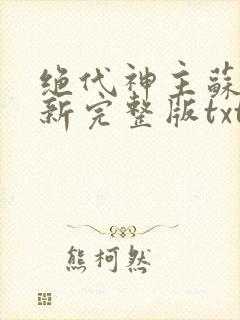 绝代神主蘇
新完整版txt
熊柯然